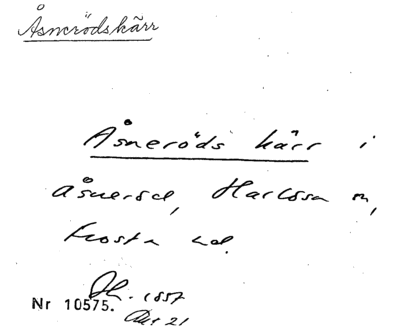 Åsnerödskärr
Åsneröds kärr i
Åsneröd, Harlösa sn,
Frosta hd.
1887
Nr 10575.